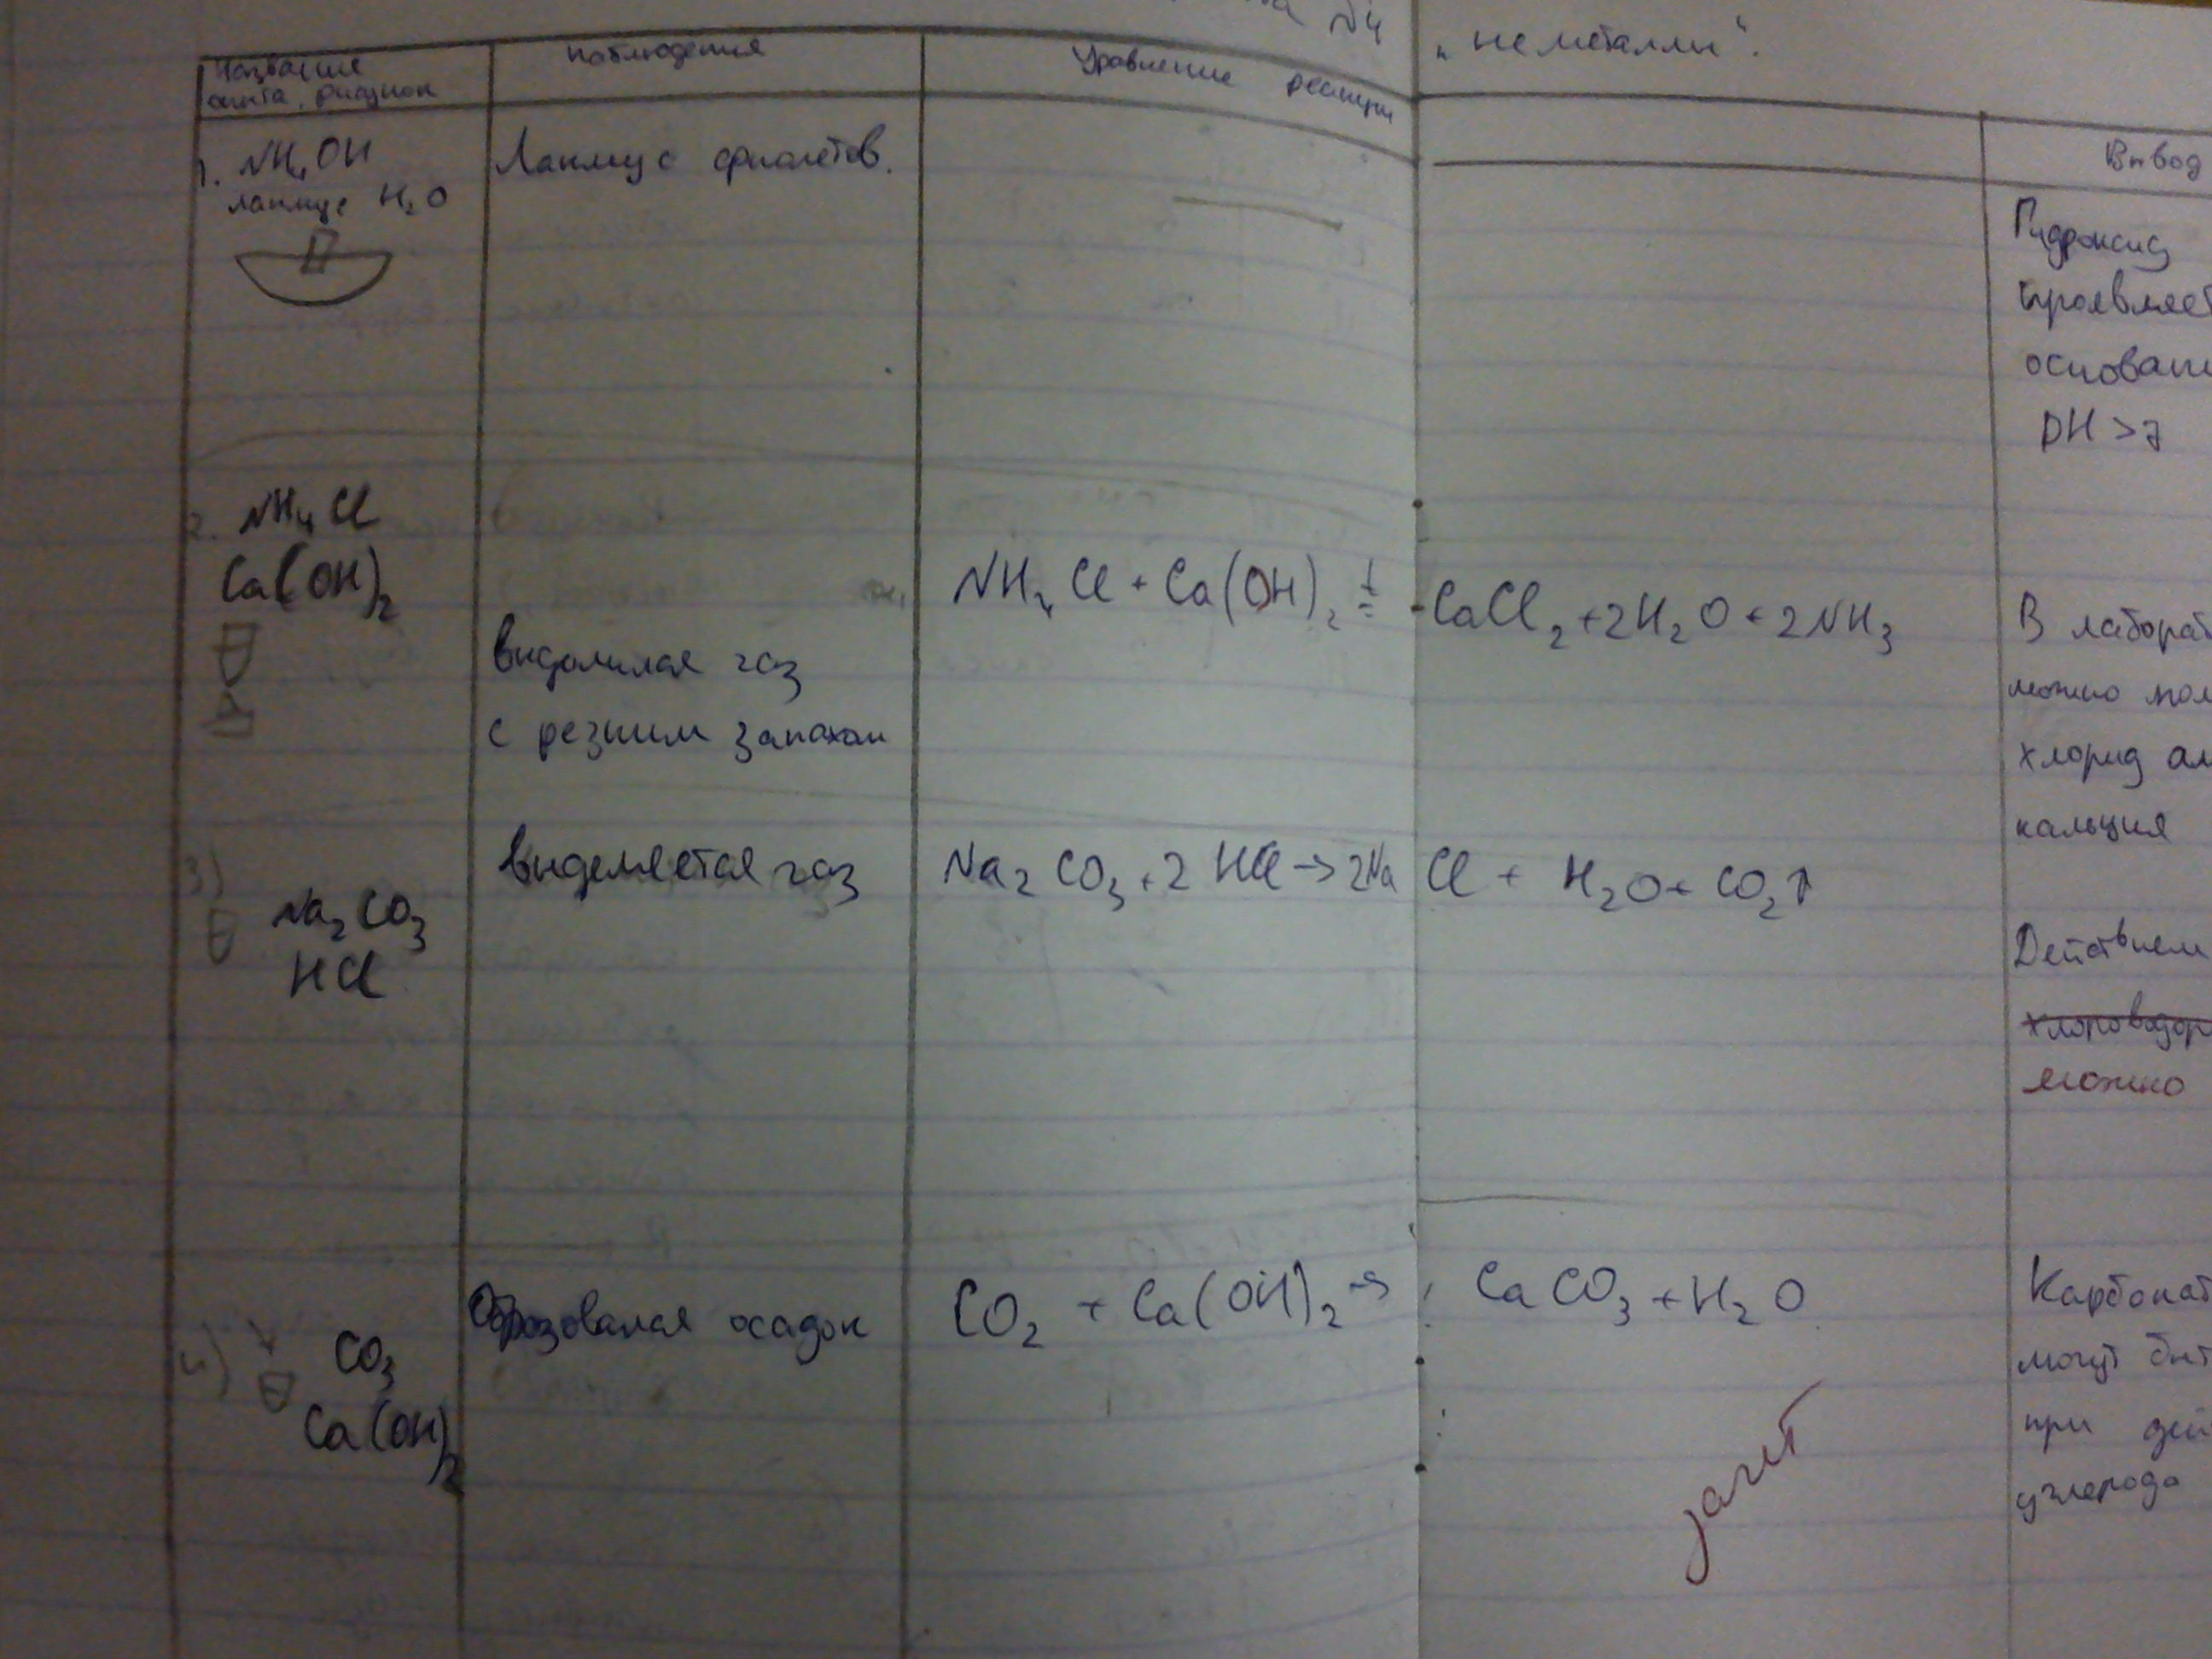 №4 „неметаллы“.
Название
опыта, рисунок
наблюдения
Уравнение реакции
Вывод
1. NH₄OH
лакмус H₂O
Лакмус фиолетов.
Гидроксид
проявляет
основани
pH >7
2. NH₄Cl
Ca(OH)₂
выделилася газ
с резким запахом
NH₄Cl + Ca(OH)₂ t= CaCl₂ + 2H₂O + 2NH₃
В лаборат
можно пол
хлорид ам
кальция
3)
Na₂CO₃
HCl
выделяется газ
Na₂CO₃ + 2HCl → 2NaCl + H₂O + CO₂↑
Действием
хлороводор
можно
4) CO₃
Ca(OH)₂
Образовался осадок
CO₂ + Ca(OH)₂ → CaCO₃ + H₂O
Карбонат
могут быт
при дей
углерода
зачёт